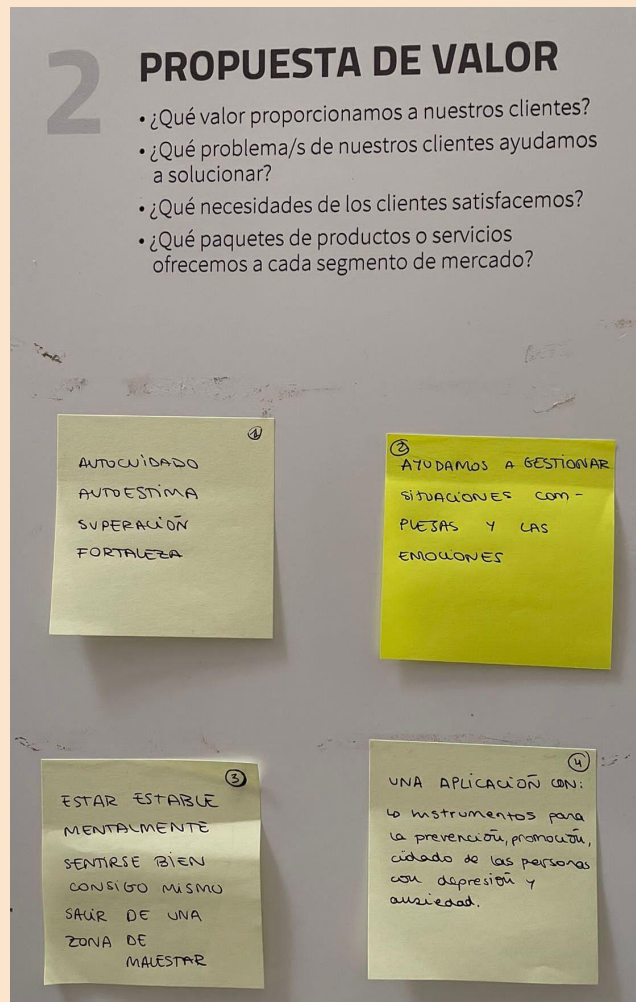 2
PROPUESTA DE VALOR
• ¿Qué valor proporcionamos a nuestros clientes?
• ¿Qué problema/s de nuestros clientes ayudamos
a solucionar?
• ¿Qué necesidades de los clientes satisfacemos?
• ¿Qué paquetes de productos o servicios
ofrecemos a cada segmento de mercado?
1
AUTOCUIDADO
AUTOESTIMA
SUPERACIÓN
FORTALEZA
2
AYUDAMOS A GESTIONAR
SITUACIONES COM-
PLEJAS Y LAS
EMOCIONES
3
ESTAR ESTABLE
MENTALMENTE
SENTIRSE BIEN
CONSIGO MISMO
SALIR DE UNA
ZONA DE
MALESTAR
4
UNA APLICACIÓN CON:
↳ instrumentos para
la prevención, promoción,
cidado de las personas
con depresión y
ansiedad.